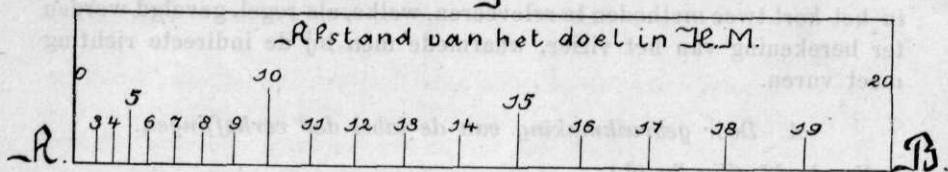 Afstand van het doel in H.M.
0 10 20
5 15
3 4 6 7 8 9 11 12 13 14 16 17 18 19
A. B.